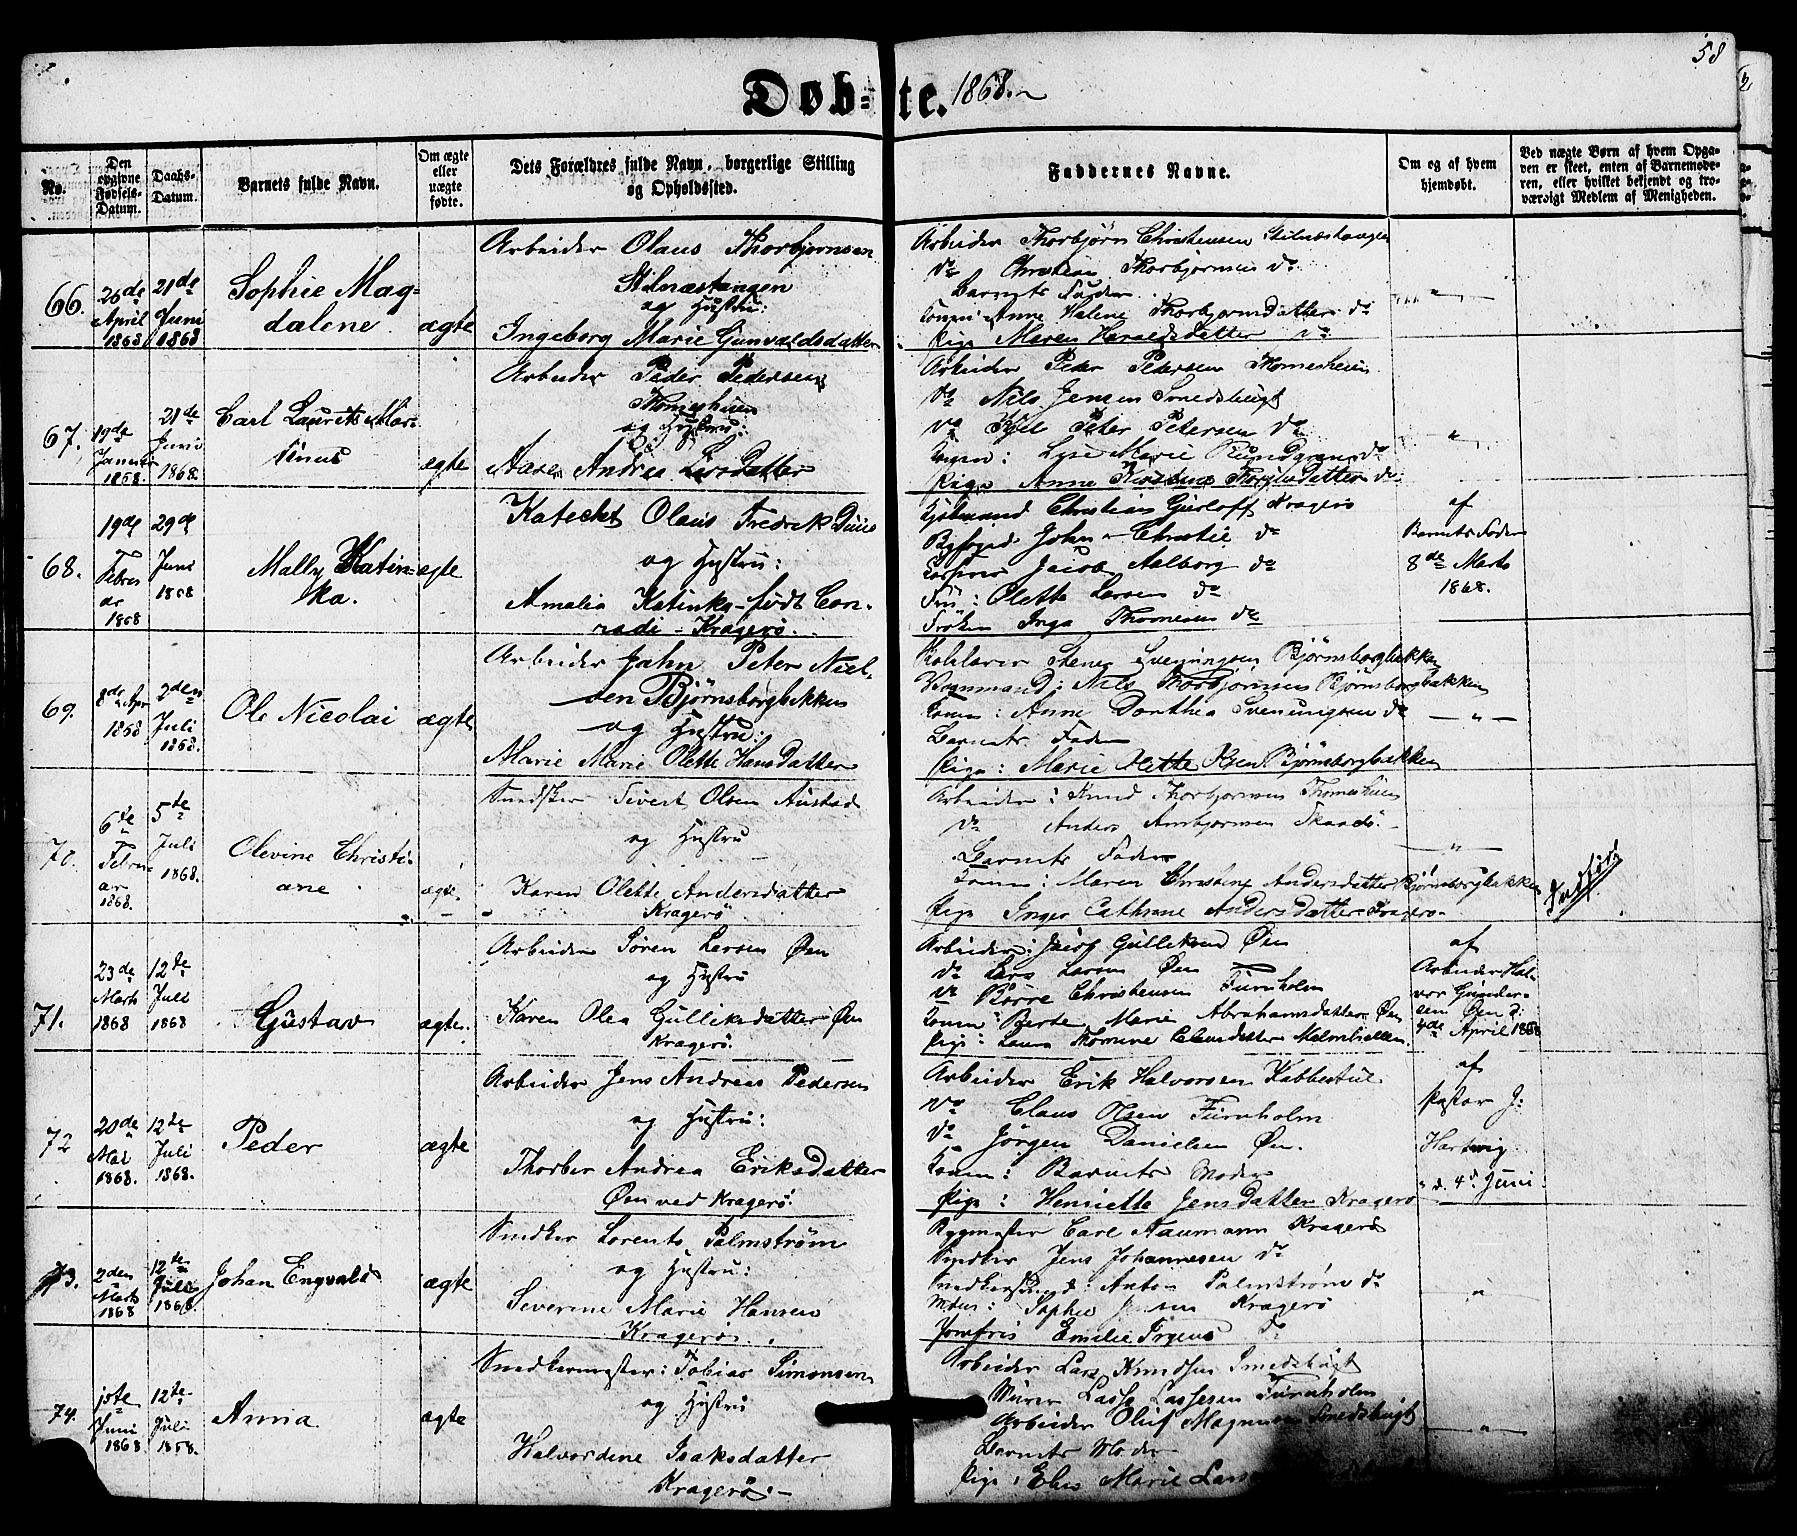 58
Døb-te. 1868.
No.
Den opgivne Fødsels-Datum.
Daabs-Datum.
Barnets fulde Navn.
Om ægte eller uægte fødte.
Dets Forældres fulde Navn, borgerlige Stilling og Opholdssted.
Faddernes Navne.
Om og af hvem hjemdøbt.
Ved uægte Børn af hvem Opga-
ven er skeet, enten af Barnemode-
ren, eller hvilket bekjendt og tro-
værdigt Medlem af Menigheden.
66.
26de April 1868
21de Juni 1868
Sophie Mag-
dalene
ægte
Arbeider Olaus Thorbjørnsen
Stilnæstangen
og Hustru:
Ingeborg Marie Gunvaldsdatter
Arbeider Thorbjørn Christensen Stilnæstangen
do Christian Thorbjørnsen do
Barnets Fader
Konen Anne Helene Thorbjørnsdatter do
Pige Maren Haraldsdatter do
67.
19de Januar 1868.
21de Juni 1868.
Carl Laurits Mar-
tinus
ægte
Arbeider Peder Pedersen
Thomesheien
og Hustru:
Aase Andrea Larsdatter
Arbeider Peder Petersen Thomesheien
do Nils Jensen Smedsbugt
do Kjil Peter Petersen do
Konen: Lyse Marie do
Pige Anne Kirstine do
68.
19de Februar 1868
29de Juni 1868
Mally Katin-
ka.
ægte
Katechet Olaus Fredrik Duus
og Hustru:
Amalia Katinka født Con-
radi - Kragerø.
Kjøbmand Christian Gurloff Kragerø
Byfoged John Christie do
Jacob Aalborg do
Fru: Olette Larsen do
Frøken Inga Thomesen do
af
Barnets Fader
8de Marts
1868.
69.
8de Apr 1868
2den Juli 1868.
Ole Nicolai
ægte
Arbeider John Peter Niel-
sen Bjørnsborgbakken
og Hustru:
Marie Marie Olette Hansdatter
Stener Svenungsen Bjørnsborgbakken
Vognmand: Nils Thorbjørnsen Bjørnsborgbakken
Konen: Anne Dorthea Svenungsen do
Barnets Fader
Pige: Marie Olette Olsen Bjørnsborgbakken
70.
6te Februar 1868.
5te Juli 1868.
Olevine Christi-
ane
ægte.
Snedker Sivert Olsen Austad
og Hustru
Karen Olette Andersdatter
Kragerø
Arbeider: Knud Thorbjørnsen Thomesheien
do Anders Ambjørnsen Skaadø.
Barnets Fader
Konen: Maren Christine Andersdatter Bjørnsborgbakken
Pige Inger Cathrine Andersdatter Kragerø.
Indført
71.
23de Marts 1868
12te Juli 1868
Gustav
ægte.
Arbeider Søren Larsen Øen
og Hustru
Karen Olea Gulliksdatter Øen
Kragerø.
Arbeider: Jacob Gulliksen Øen
do Lars Larsen Øen
do Børre Christensen Furuholm
Konen: Berte Marie Abrahamsdatter Øen
Pige: Laura Thomine Clausdatter Malmhellen.
af
Arbeider Hal-
vor Gunder-
sen Øen d:
4de April 1868
72
20de Mai 1868.
12te Juli 1868.
Peder
ægte
Arbeider Jens Andreas Pedersen
og Hustru:
Thorber Andrea Eriksdatter
Øen ved Kragerø.
Arbeider Erik Halvorsen Kabbestul.
do Claus Olsen Furuholm
do Jörgen Danielsen Øen.
Konen: Barnets Moder
Pige: Henriette Jensdatter Kragerø
af
Pastor J:
Hartwig
d. 4d Juni.
73.
2den Marts 1868
12te Juli 1868.
Johan Engvald
ægte
Snedker Lorents Palmstrøm
og Hustru:
Severine Marie Hansen
Kragerø.
Bygmester Carl Naumann Kragerø
Snedker Jens Johannesen do
Anton Palmstrøm do
Sophie Jensen Kragerø
Jomfru Emilie Irgens do
74.
10te Juni 1868
12te Juli 1868.
Anna
ægte
Snedkermester: Tobias Simonsen
og Hustru
Halvordine Isaksdatter
Kragerø.
Arbeider Lars Knudsen Smedsbugt
Murer Lasse Lassesen Furuholm
Arbeider Oluf Magnusen Smedsbugt
Barnets Moder
Pige: Elen Marie